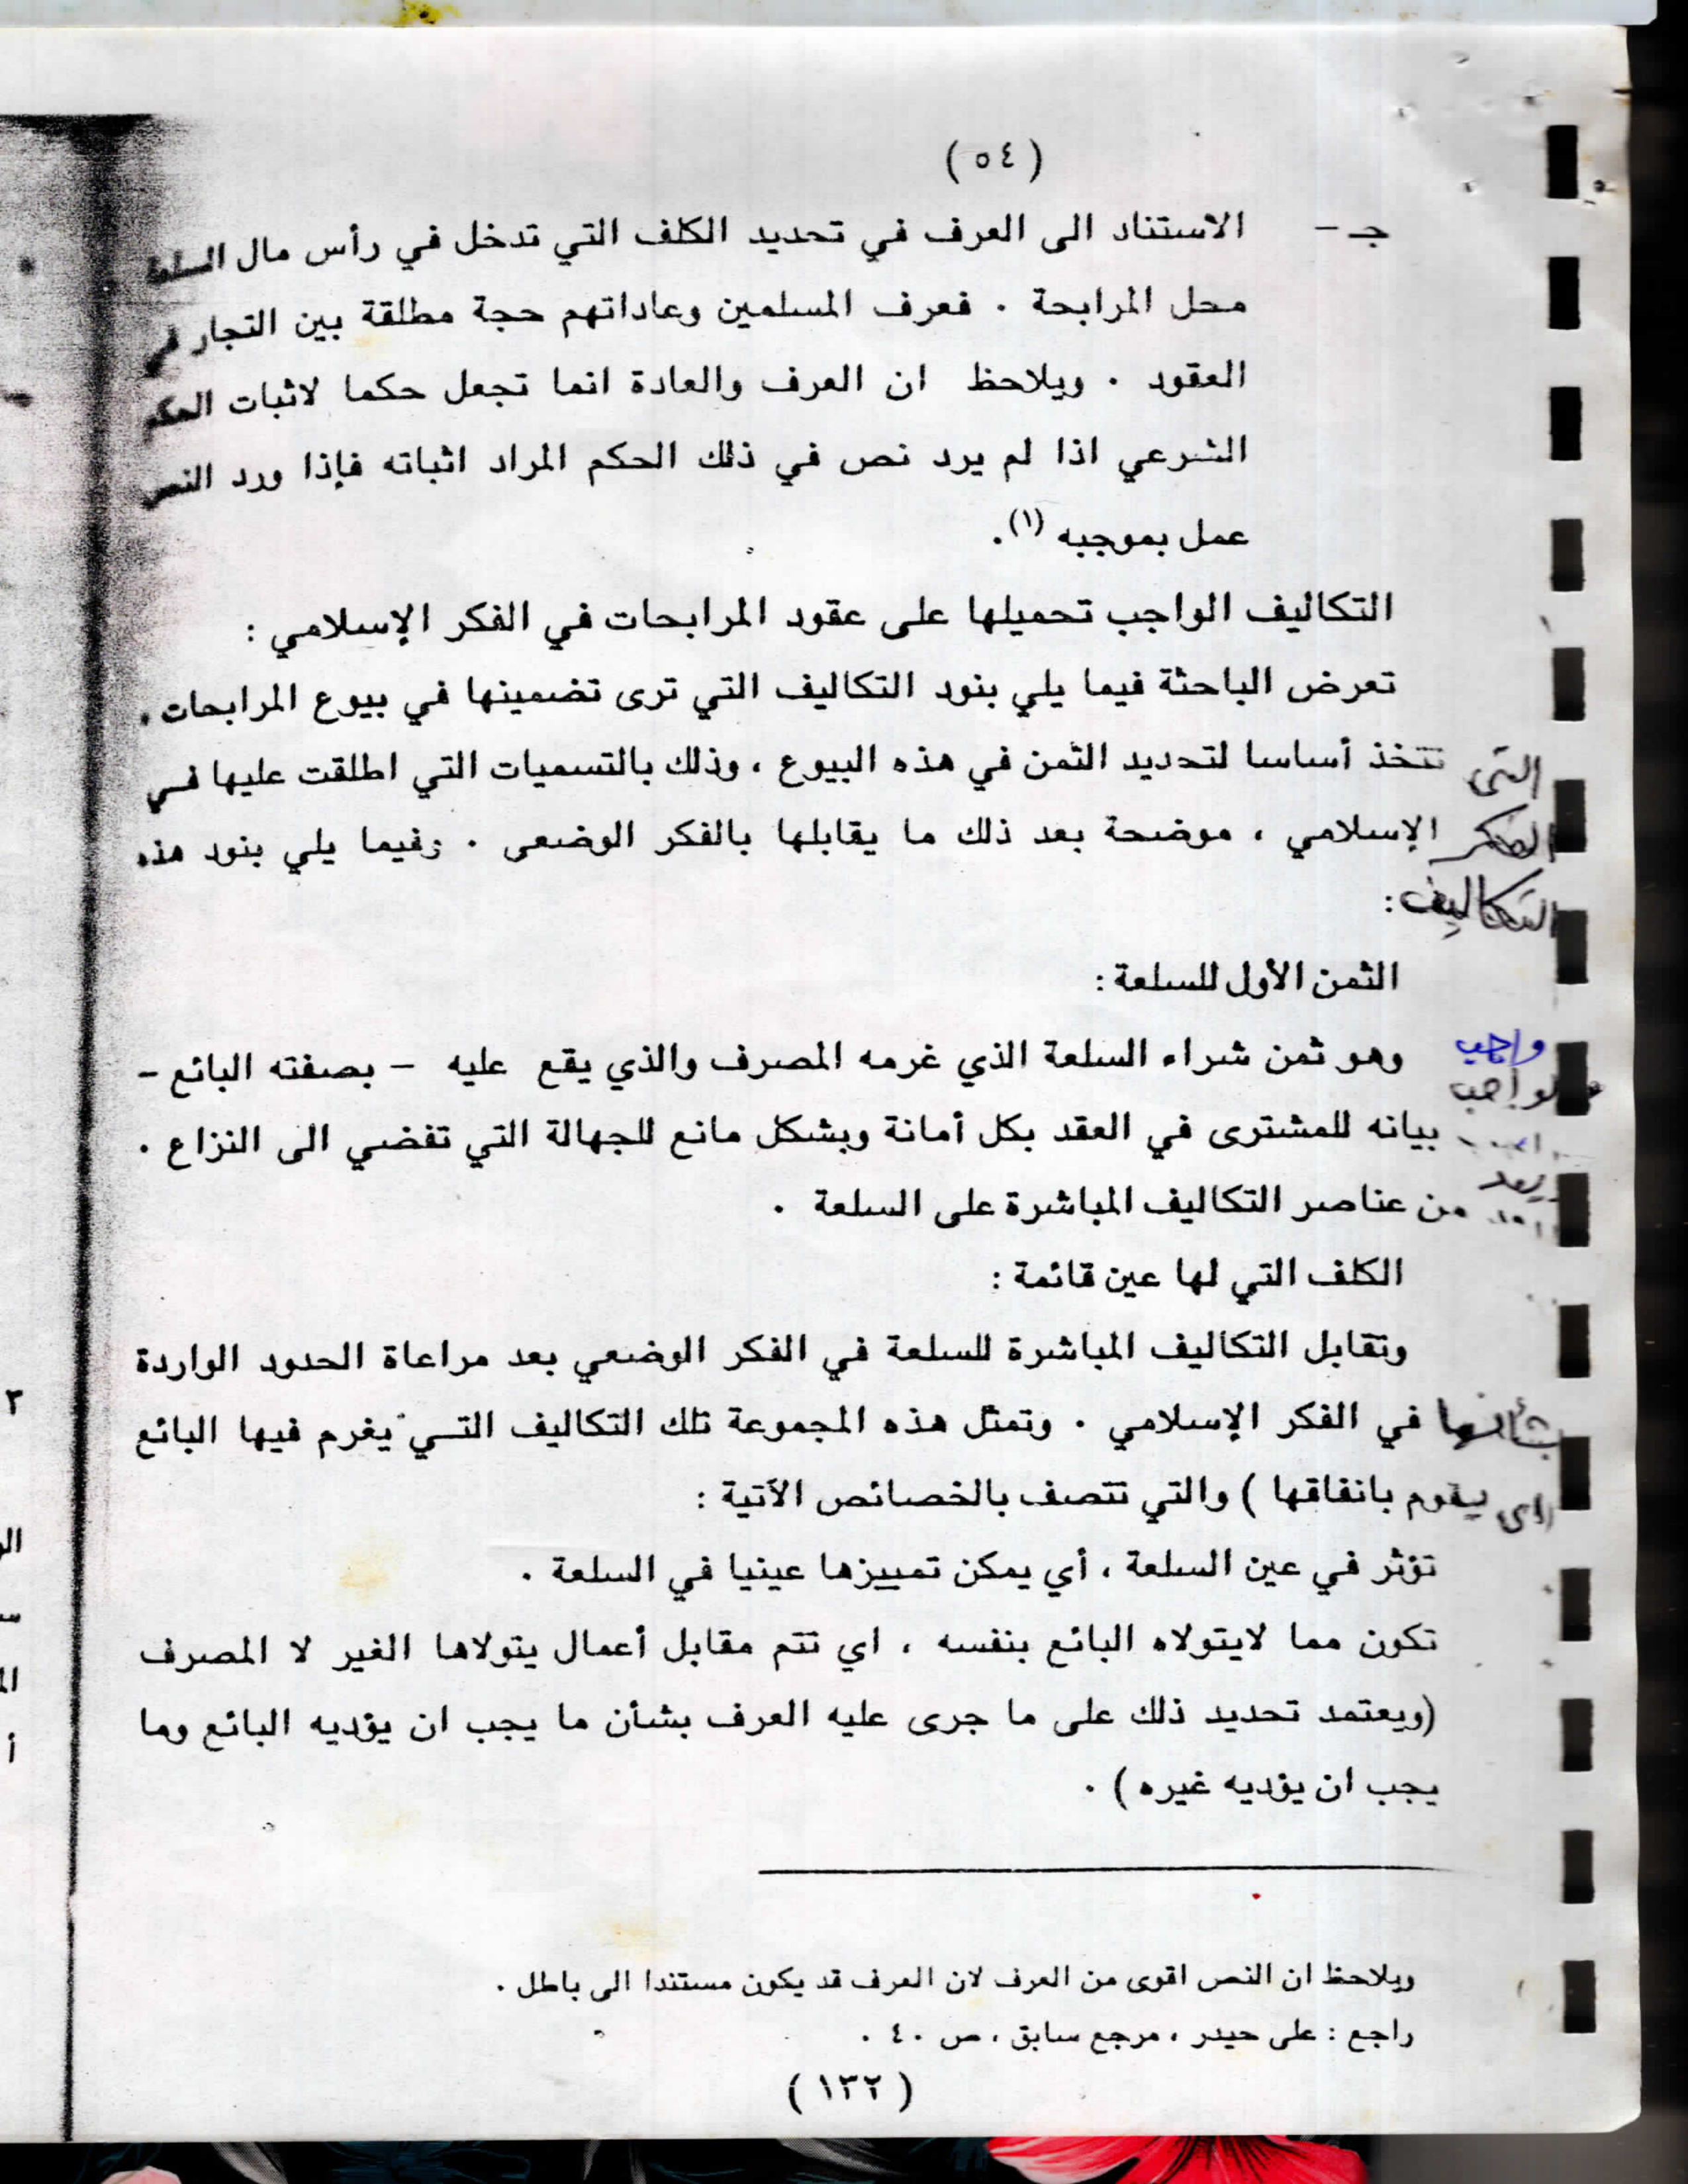 (٥٤)
جـ - الاستناد الى العرف في تحديد الكلف التي تدخل في رأس مال السلعة
محل المرابحة . فعرف المسلمين وعاداتهم حجة مطلقة بين التجار في
العقود . ويلاحظ ان العرف والعادة انما تجعل حكما لاثبات الحكم
الشرعي اذا لم يرد نص في ذلك الحكم المراد اثباته فإذا ورد النص
عمل بموجبه (١).
التكاليف الواجب تحميلها على عقود المرابحات في الفكر الإسلامي :
تعرض الباحثة فيما يلي بنود التكاليف التي ترى تضمينها في بيوع المرابحات،
التى تتخذ أساسا لتحديد الثمن في هذه البيوع ، وذلك بالتسميات التي اطلقت عليها في
الفكر الإسلامي ، موضحة بعد ذلك ما يقابلها بالفكر الوضعى . وفيما يلي بنود هذه
التكاليف :
الثمن الأول للسلعة :
وهو ثمن شراء السلعة الذي غرمه المصرف والذي يقع عليه - بصفته البائع -
واجب
بيانه للمشترى في العقد بكل أمانة وبشكل مانع للجهالة التي تفضي الى النزاع .
ويعد من عناصر التكاليف المباشرة على السلعة .
الكلف التي لها عين قائمة :
وتقابل التكاليف المباشرة للسلعة في الفكر الوضعي بعد مراعاة الحدود الواردة
بشأنها في الفكر الإسلامي . وتمثل هذه المجموعة تلك التكاليف التي يغرم فيها البائع
(اى يقوم بانفاقها ) والتي تتصف بالخصائص الآتية :
تؤثر في عين السلعة ، أي يمكن تمييزها عينيا في السلعة .
تكون مما لايتولاه البائع بنفسه ، اي تتم مقابل أعمال يتولاها الغير لا المصرف
(ويعتمد تحديد ذلك على ما جرى عليه العرف بشأن ما يجب ان يؤديه البائع وما
يجب ان يؤديه غيره ) .
ويلاحظ ان النص اقوى من العرف لان العرف قد يكون مستندا الى باطل .
راجع : على حيدر ، مرجع سابق ، ص ٤٠ .
(١٣٢)